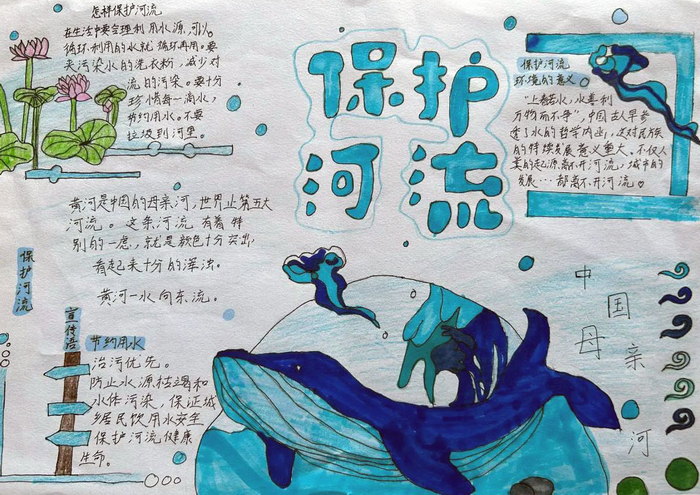 怎样保护河流
在生活中要合理利用水源,可以
循环利用的水就循环再用。要
污染水的洗衣粉,减少对
流的污染。要十分
珍惜每一滴水,
节约用水。不要
垃圾到河里。
保护
河流
保护河流
环境的意义
"上善若水,水善利
万物而不争",中国古人早参
了水的哲学内涵,这对民族
的特续发展意义重大,不仅人
类的起源离不开河流,城市的
发展…都离不开河流。
黄河是中国的母亲河,世界上第五大
河流。这条河流有着特
别的一点,就是颜色十分突出,
看起来十分的浑浊。
黄河一水向东流。
保护河流
宣传语
节约用水
治污优先。
防止水源枯竭和
水体污染,保证城
乡居民饮用水安全
保护河流健康
生命。
中国母亲河